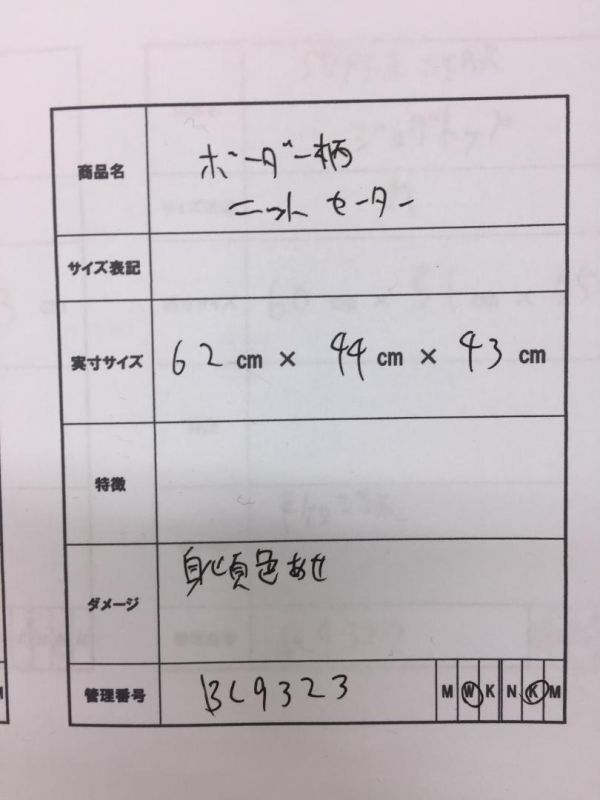 商品名 ボーダー柄
ニット セーター
サイズ表記
実寸サイズ 62 cm × 44 cm × 43 cm
特徴
ダメージ 身頃色あせ
管理番号 BC9323 M W K N K M